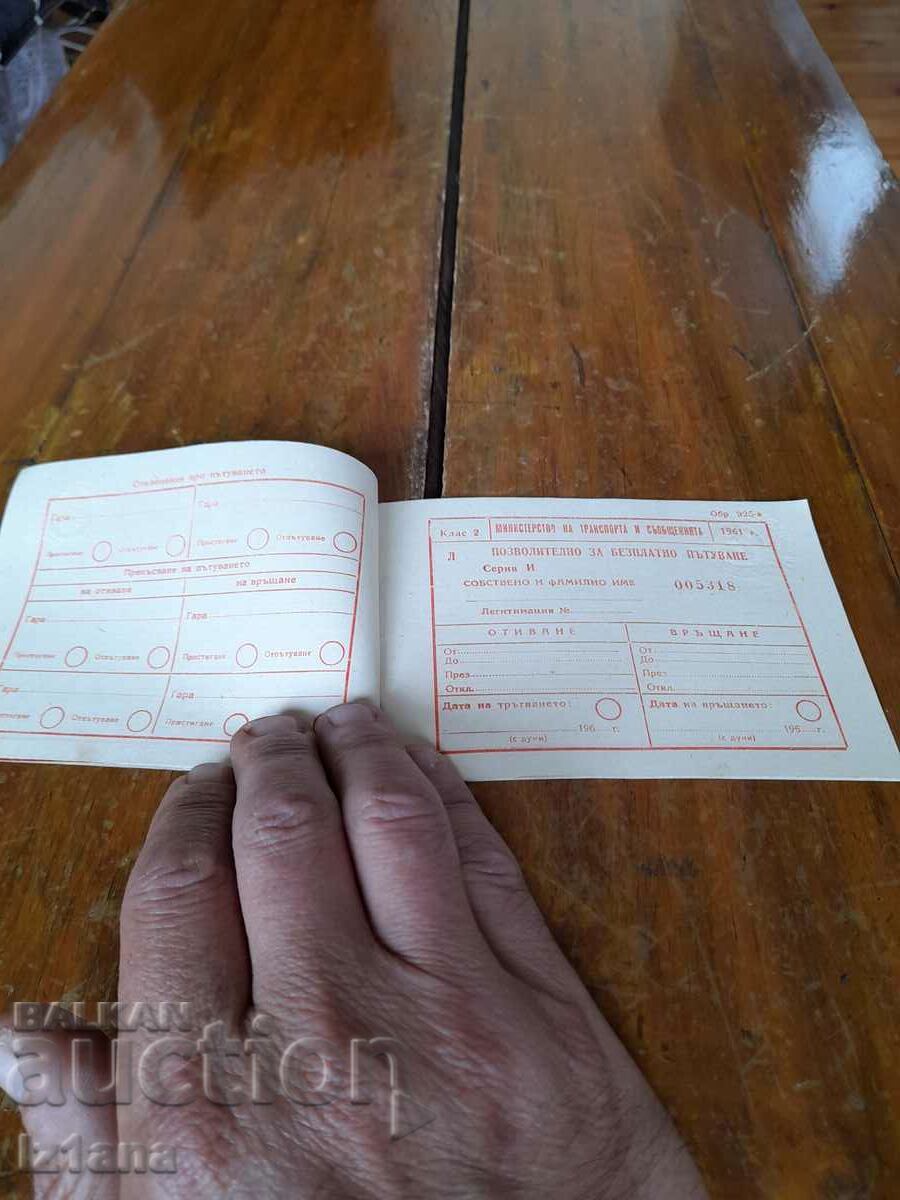 при пътуването
Гара
Гара
Пристигане Отпътуване Пристигане Отпътуване
Прекъсване на пътуването
на отиване на връщане
Гара
Гара
Пристигане Отпътуване Пристигане Отпътуване
Гара
Гара
Пристигане Отпътуване Пристигане
Обр. 325-а
Клас 2 МИНИСТЕРСТВО НА ТРАНСПОРТА И СЪОБЩЕНИЯТА 1961 г.
Л ПОЗВОЛИТЕЛНО ЗА БЕЗПЛАТНО ПЪТУВАНЕ
Серия И
СОБСТВЕНО И ФАМИЛНО ИМЕ 005318
Легитимация №
ОТИВАНЕ ВРЪЩАНЕ
От От
До До
През През
Откл. Откл.
Дата на тръгването: Дата на връщането:
196 г. 195 г.
(с думи) (с думи)
BALKAN
auction
iz1ana